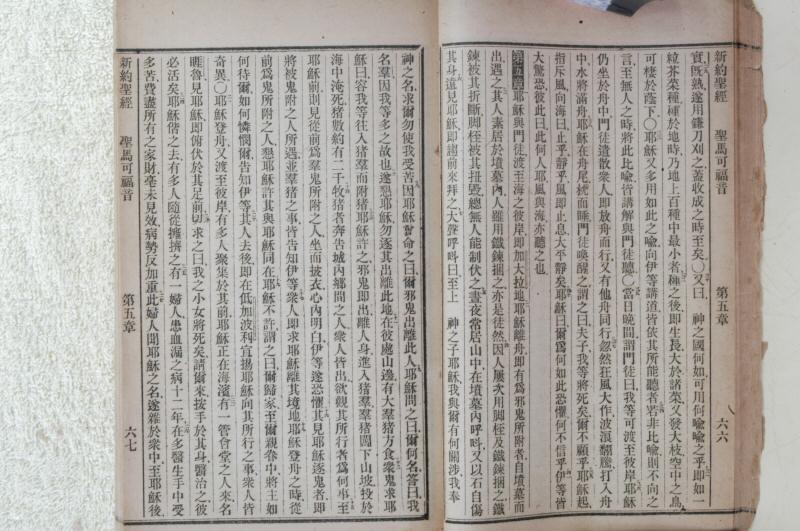 新約聖經 聖馬可福音 第五章 六六
實既熟遂用鐮刀刈之蓋收成之時至矣〇又曰 神之國何如可用何喻喻之乎即如一
粒芥菜種種於地時乃地上百種中最小者種之後即生長大於諸菜又發大枝空中之鳥
可棲於蔭下〇耶穌又多用如此之喻向伊等講道皆依其所能聽者若非比喻則不向之
言至無人之時將此比喻皆講解與門徒聽〇當日晚間謂門徒曰我等可渡至彼岸耶穌
仍坐於舟中門徒遣散衆人即放舟而行又有他舟同行忽然狂風大作波浪翻騰打入舟
中水將滿舟耶穌在舟尾枕而睡門徒喚醒之謂之曰夫子我等將死矣爾不顧乎耶穌起
指斥風向海曰止乎靜乎風即止息大平靜矣耶穌曰爾爲何如此恐懼何不信乎伊等皆
大驚恐彼此曰此何人耶風與海亦聽之也
第五章耶穌與門徒渡至海之彼岸即加大拉地耶穌離舟即有爲邪鬼所附者自墳墓而
出遇之其人素居於墳墓內人用鐵鍊捆之亦是徒然因人屢次用脚桎及鐵鍊捆之鐵
鍊被其折斷脚桎被其扭毀總無人能制伏之晝夜常居山中在墳墓內呼呌又以石自傷
其身遠見耶穌即趨前來拜之大聲呼呌曰至上 神之子耶穌我與爾有何關涉我奉
神之名求爾勿使我受苦因耶穌曾命之曰爾邪鬼出離此人耶穌問之曰爾何名答曰我
名羣因我等多之故也遂懇耶穌勿逐其出離此地在彼處山邊有大羣猪方食衆鬼求耶
穌曰容我等往入猪羣而附猪耶穌許之邪鬼即出離人身進入猪羣羣猪闖下山坡投於
海中淹死猪數約有二千牧猪者奔告城內鄉間之人衆人皆出欲觀其所行者爲何事至
耶穌前則見從前爲羣鬼所附之人坐而披衣心內明白伊等遂恐懼其見耶穌逐鬼者即
將被鬼附之人所遇並羣猪之事皆告知伊等衆人即求耶穌離其境地耶穌登舟之時從
前爲鬼所附之人懇耶穌許其與耶穌同在耶穌不許謂之曰爾歸家至爾親眷中將主如
何待爾如何憐憫爾告知伊等其人去後即在低加波利宣揚耶穌向其所行之事衆人皆
奇異〇耶穌登舟又渡至彼岸有多人聚集於其前耶穌正在海濱有一管會堂之人來名
睚魯見耶穌即俯伏於其足前切求之曰我之小女將死矣請爾來按手於其身醫治之彼
必活矣耶穌偕之去有多人隨從擁擠之有一婦人患血漏之病十二年在多醫生手中受
多苦費盡所有之家財毫未見效病勢反加重此婦人聞耶穌之名遂雜於衆中至耶穌後
新約聖經 聖馬可福音 第五章 六七